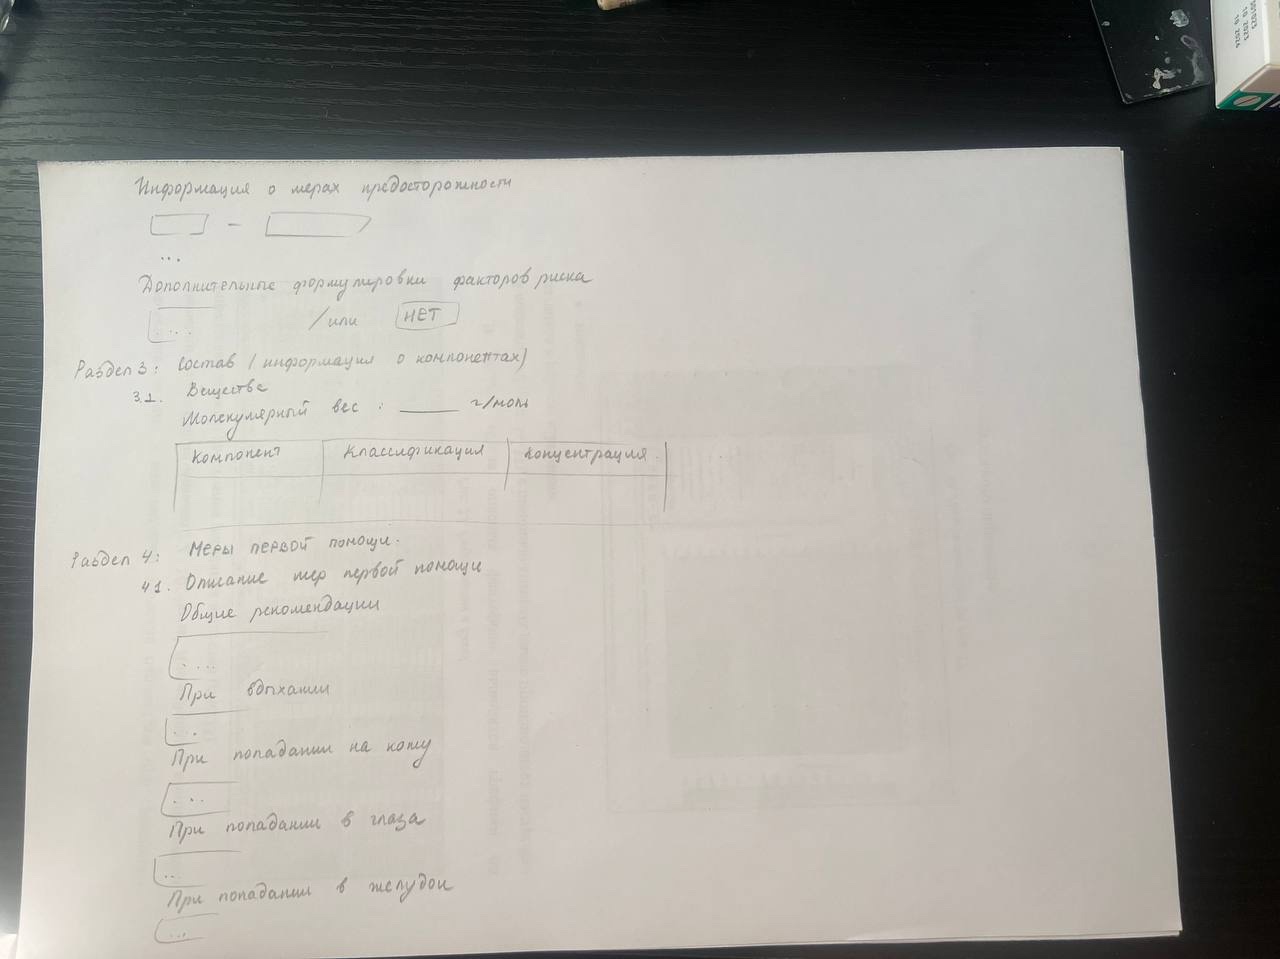 Информация о мерах предосторожности
–
...
Дополнительные формулировки факторов риска
.... / или НЕТ
Раздел 3: Состав (информация о компонентах)
3.1. Вещества
Молекулярный вес : ____ г/моль
Компонент Классификация Концентрация
Раздел 4: Меры первой помощи.
4.1. Описание мер первой помощи
Общие рекомендации
....
При вдыхании
...
При попадании на кожу
...
При попадании в глаза
...
При попадании в желудок
...